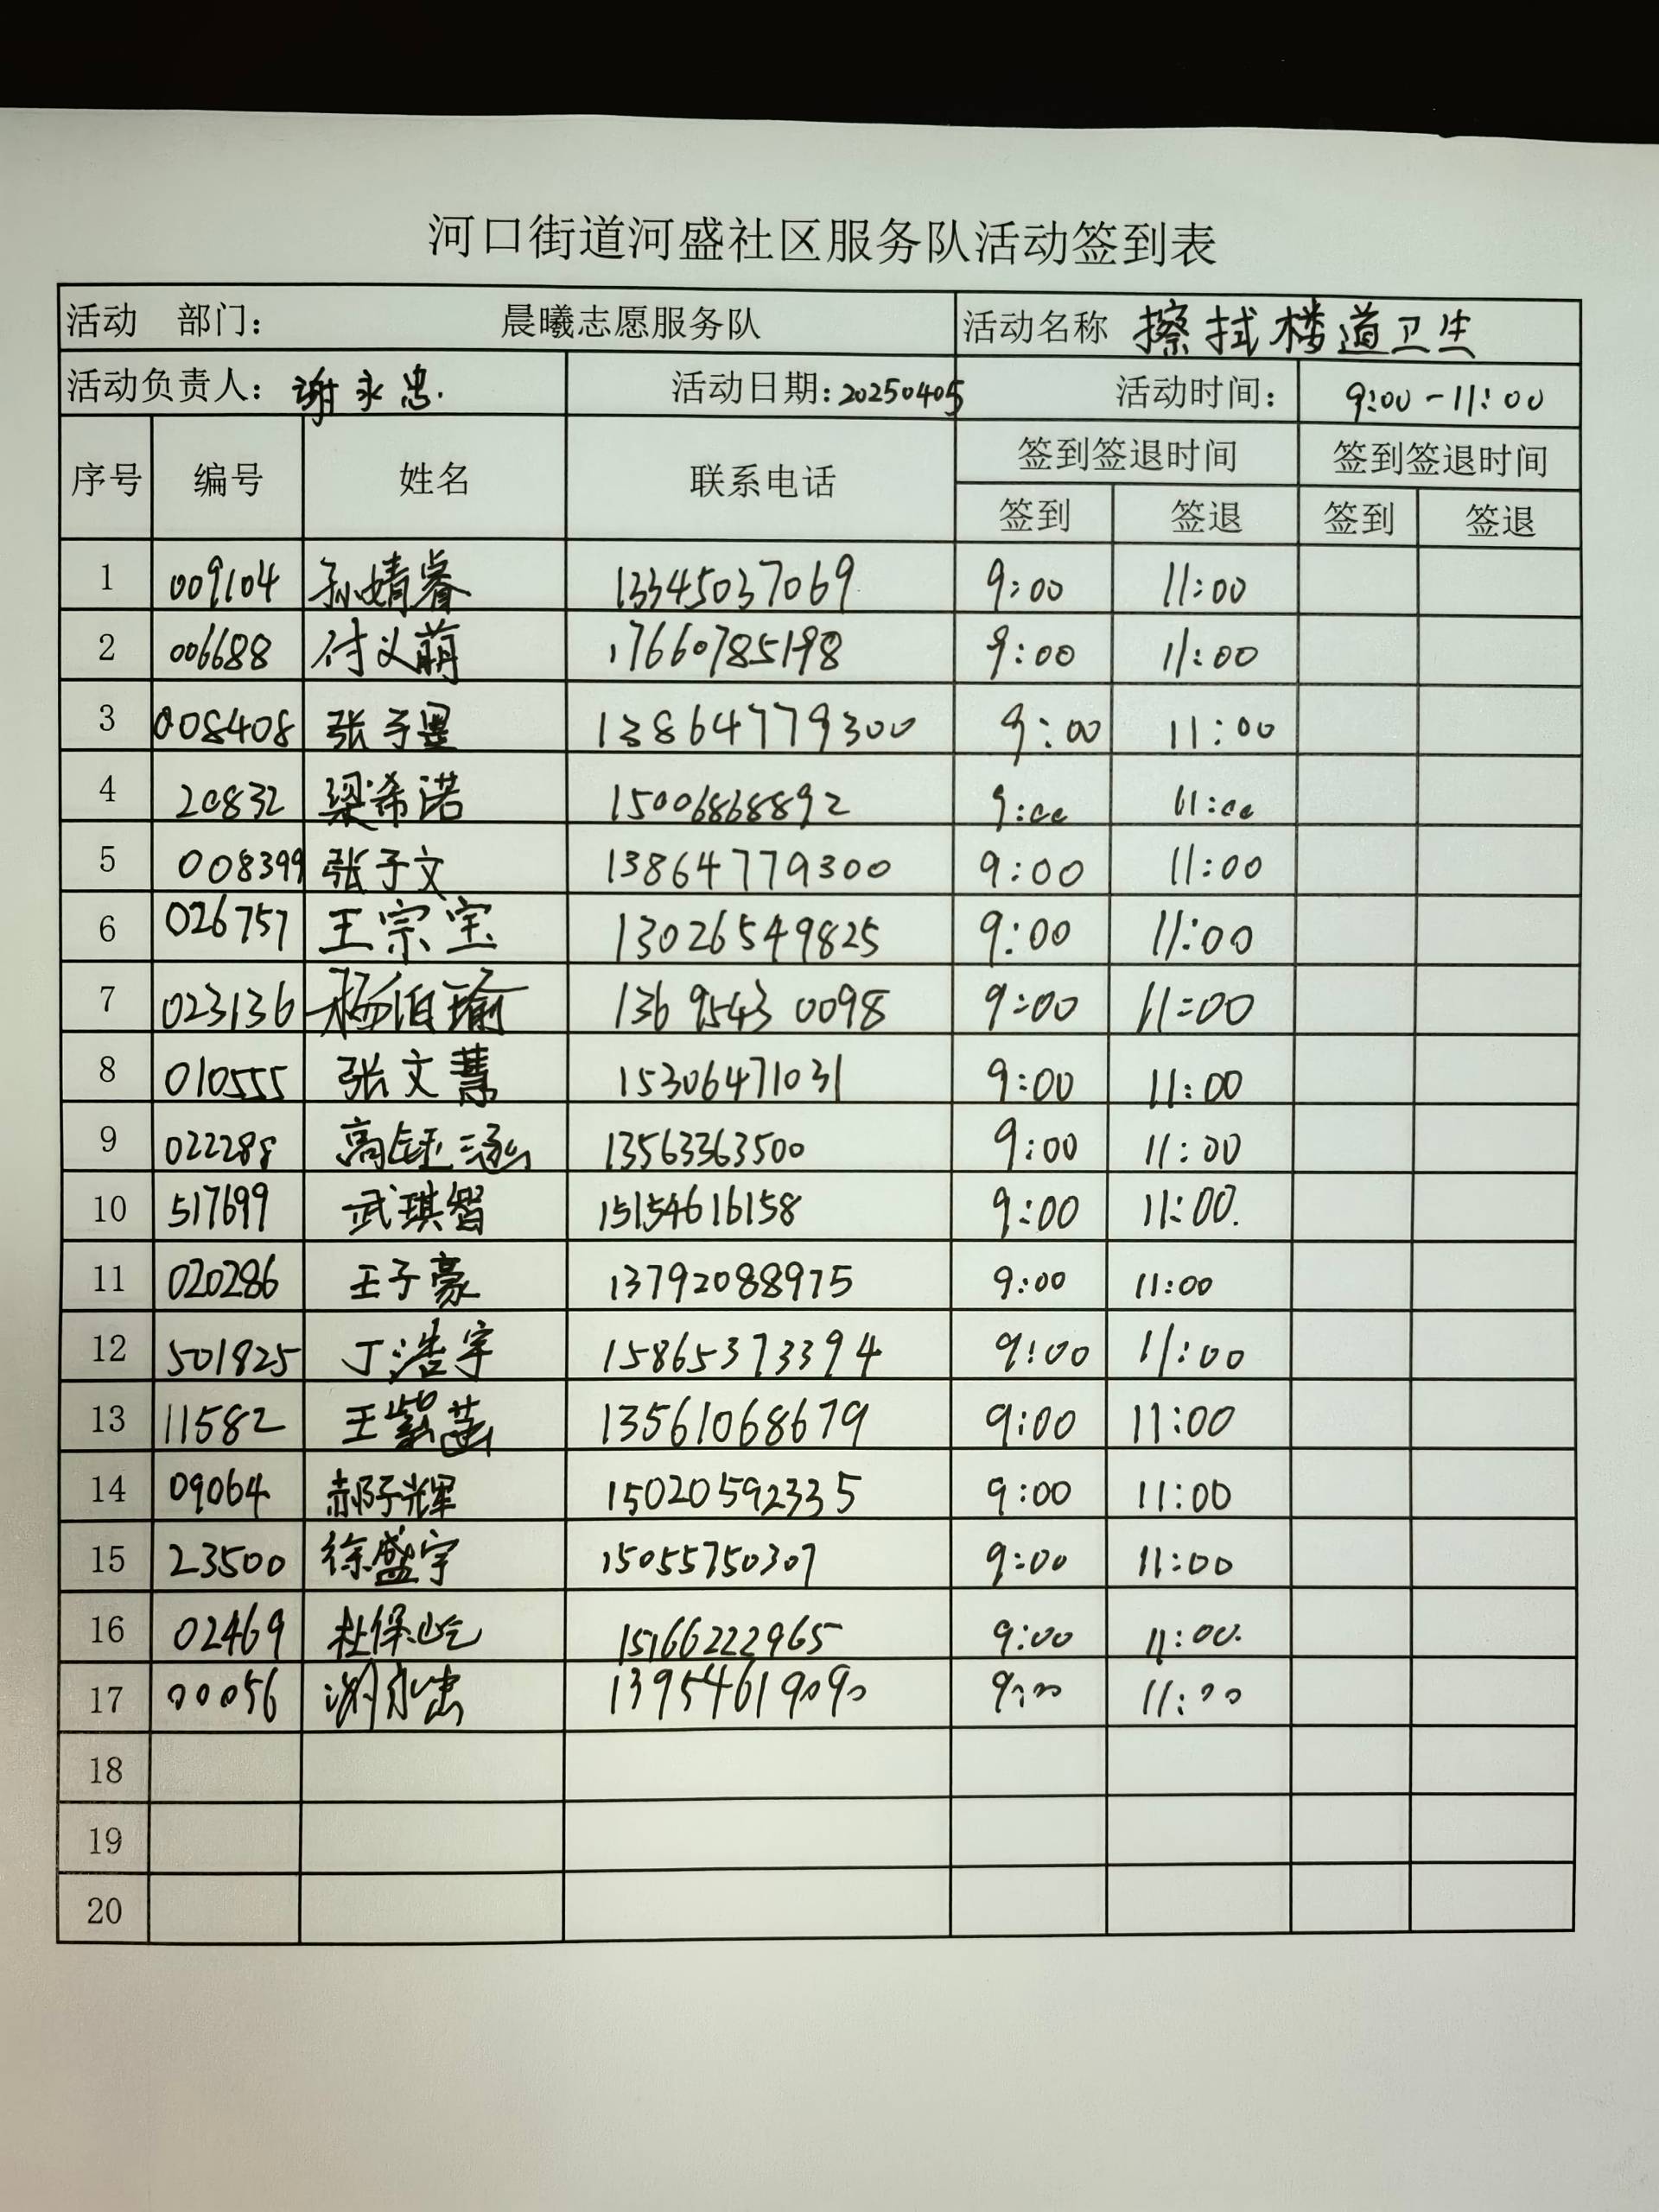 河口街道河盛社区服务队活动签到表
活动 部门: 晨曦志愿服务队 活动名称 擦拭楼道卫生
活动负责人: 谢永忠. 活动日期: 20250405 活动时间: 9:00-11:00
序号 编号 姓名 联系电话 签到签退时间 签到签退时间
签到 签退 签到 签退
1 009104 孙婧睿 13345037069 9:00 11:00
2 006688 付义萌 17660785198 9:00 11:00
3 008408 张子墨 13864779300 9:00 11:00
4 20832 梁希诺 15006868892 9:00 11:00
5 008399 张子文 13864779300 9:00 11:00
6 026757 王宗宝 13026549825 9:00 11:00
7 023136 杨伯瑜 13695430098 9:00 11:00
8 010555 张文慧 15306471031 9:00 11:00
9 022288 高钰涵 13563363500 9:00 11:00
10 517699 武琪智 15154616158 9:00 11:00.
11 020286 王子豪 13792088975 9:00 11:00
12 501825 丁浩宇 15865373394 9:00 11:00
13 11582 王紫菡 13561068679 9:00 11:00
14 09064 郝子辉 15020592335 9:00 11:00
15 23500 徐盛宇 15055750307 9:00 11:00
16 02469 杜保屹 15166222965 9:00 11:00.
17 00056 谢永忠 13954619090 9:00 11:00
18
19
20